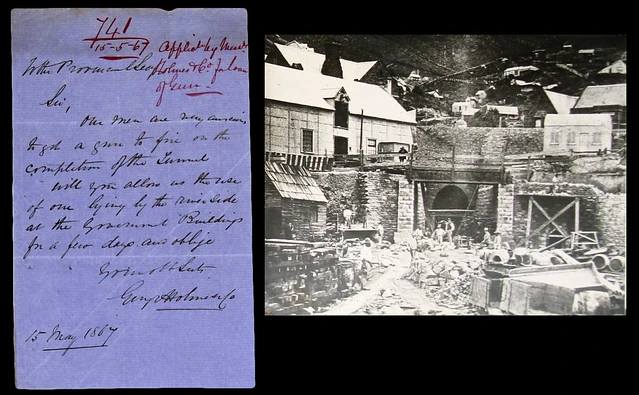 741
15-5-67
Applicn by Messrs
Holmes & Co for loan
of Gun
To the Provincial Secy
Sir,
Our men are very anxious
to get a gun to fire on the
completion of the Tunnel
will you allow us the use
of one lying by the river side
at the Government Buildings
for a few days and oblige
Your obt Svts
Geo Holmes & Co
15 May 1867